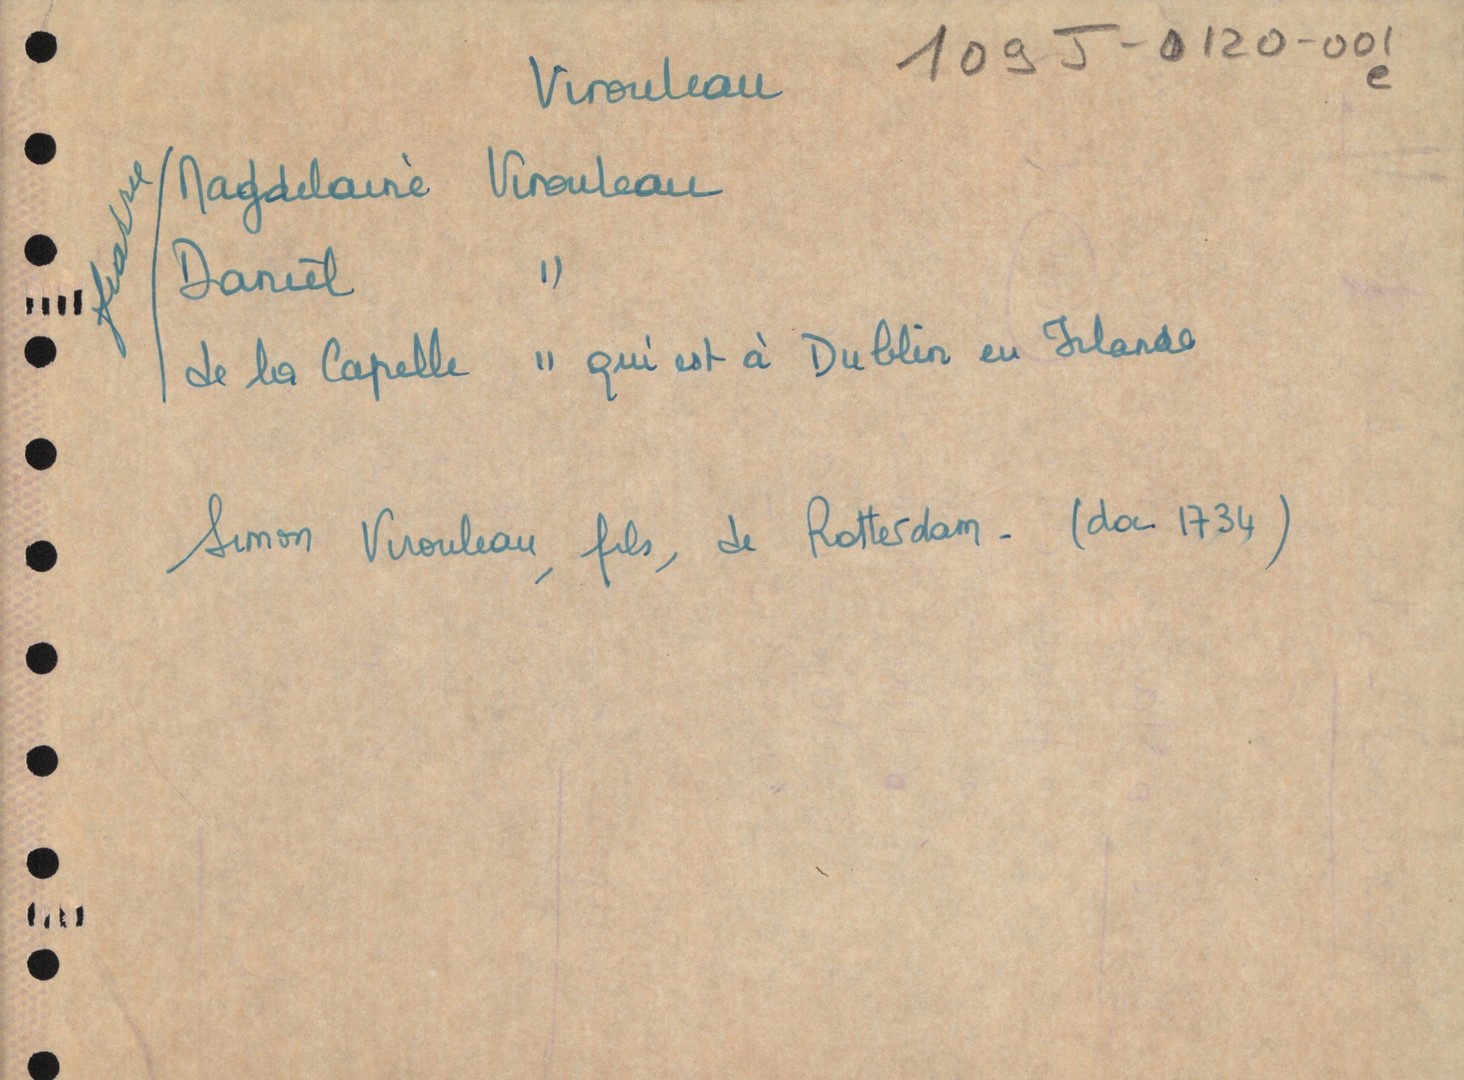 109 J - 0120 - 001
e
Virouleau
Magdelaine Virouleau
Daniel "
de la Capelle " qui est à Dublin en Irlande
Simon Virouleau, fils, de Rotterdam - (doc 1734)